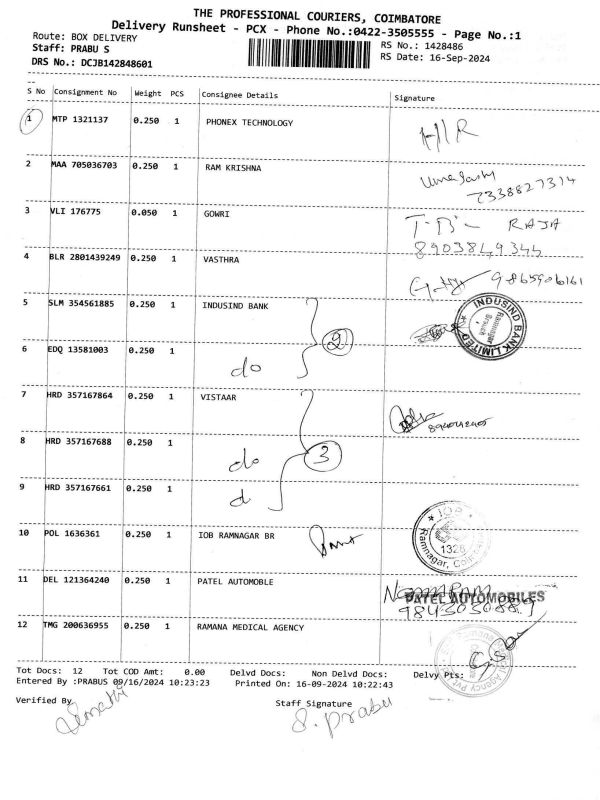 THE PROFESSIONAL COURIERS, COIMBATORE
Delivery Runsheet - PCX - Phone No.:0422-3505555 - Page No.:1
Route: BOX DELIVERY RS No.: 1428486
Staff: PRABU S RS Date: 16-Sep-2024
DRS No.: DCJB142848601
S No Consignment No Weight PCS Consignee Details Signature
1 MTP 1321137 0.250 1 PHONEX TECHNOLOGY
2 MAA 705036703 0.250 1 RAM KRISHNA
7338827314
3 VLI 176775 0.050 1 GOWRI RAJA
8903849344
4 BLR 2801439249 0.250 1 VASTHRA 9865906161
5 SLM 354561885 0.250 1 INDUSIND BANK
INDUSIND BANK LIMITED
Ramnagar
Branch
2
6 EDQ 13581003 0.250 1
do
7 HRD 357167864 0.250 1 VISTAAR
8 HRD 357167688 0.250 1
do 3
9 HRD 357167661 0.250 1
d
10 POL 1636361 0.250 1 IOB RAMNAGAR BR
IOB
1328
Ramnagar,
11 DEL 121364240 0.250 1 PATEL AUTOMOBLE
PATEL AUTOMOBILES
12 TMG 200636955 0.250 1 RAMANA MEDICAL AGENCY
Tot Docs: 12 Tot COD Amt: 0.00 Delvd Docs: Non Delvd Docs: Delvy Pts:
Entered By :PRABUS 09/16/2024 10:23:23 Printed On: 16-09-2024 10:22:43
Verified By Staff Signature
S. Prabu